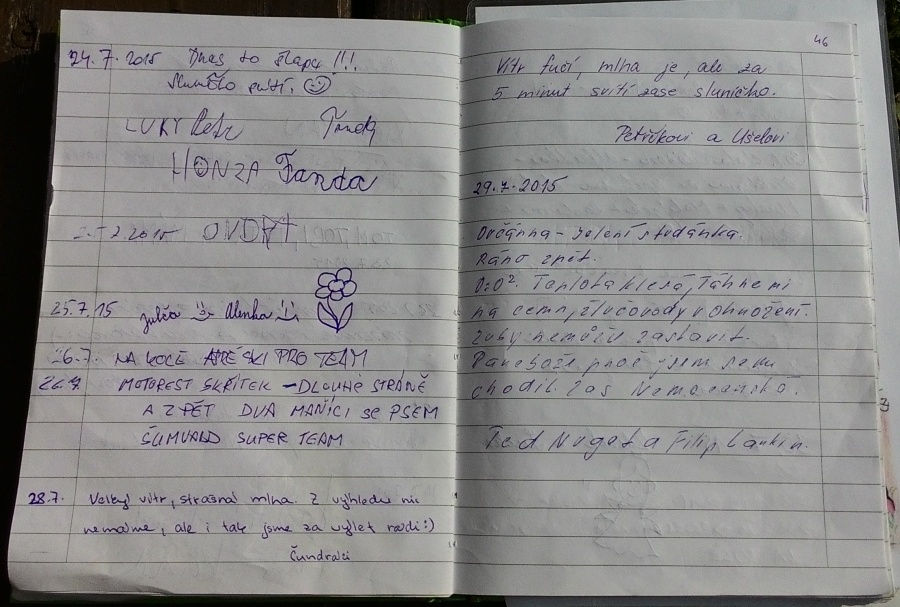 24.7.2015 Dnes to šlape !!!
Sluníčko pálí.
LUKY Petr
HONZA Fanda
2015
25.7.15 Julča Alenka
26.7. NA KOLE APRÉSKI PRO TEAM
MOTOREST SKŘÍTEK - DLOUHÉ STRÁNĚ
A ZPĚT DVA MANÍCI SE PSEM
ŠUMVALD SUPER TEAM
28.7. Velký vítr, strašná mlha. Z výhledu nic
nemáme, ale i tak jsme za výlet rádi :)
Čundráci
46
Vítr fučí, mlha je, ale za
5 minut svítí zase sluníčko.
Petříkovi a Ušelovi
29.7.2015
Ovčárna - jelení studánka.
Ráno zpět.
Teplota klesá, táhne mi
na
zuby nemůžu zastavit.
Panebože, proč jsem sem
chodil. Zas
Ted Nugot a Filip